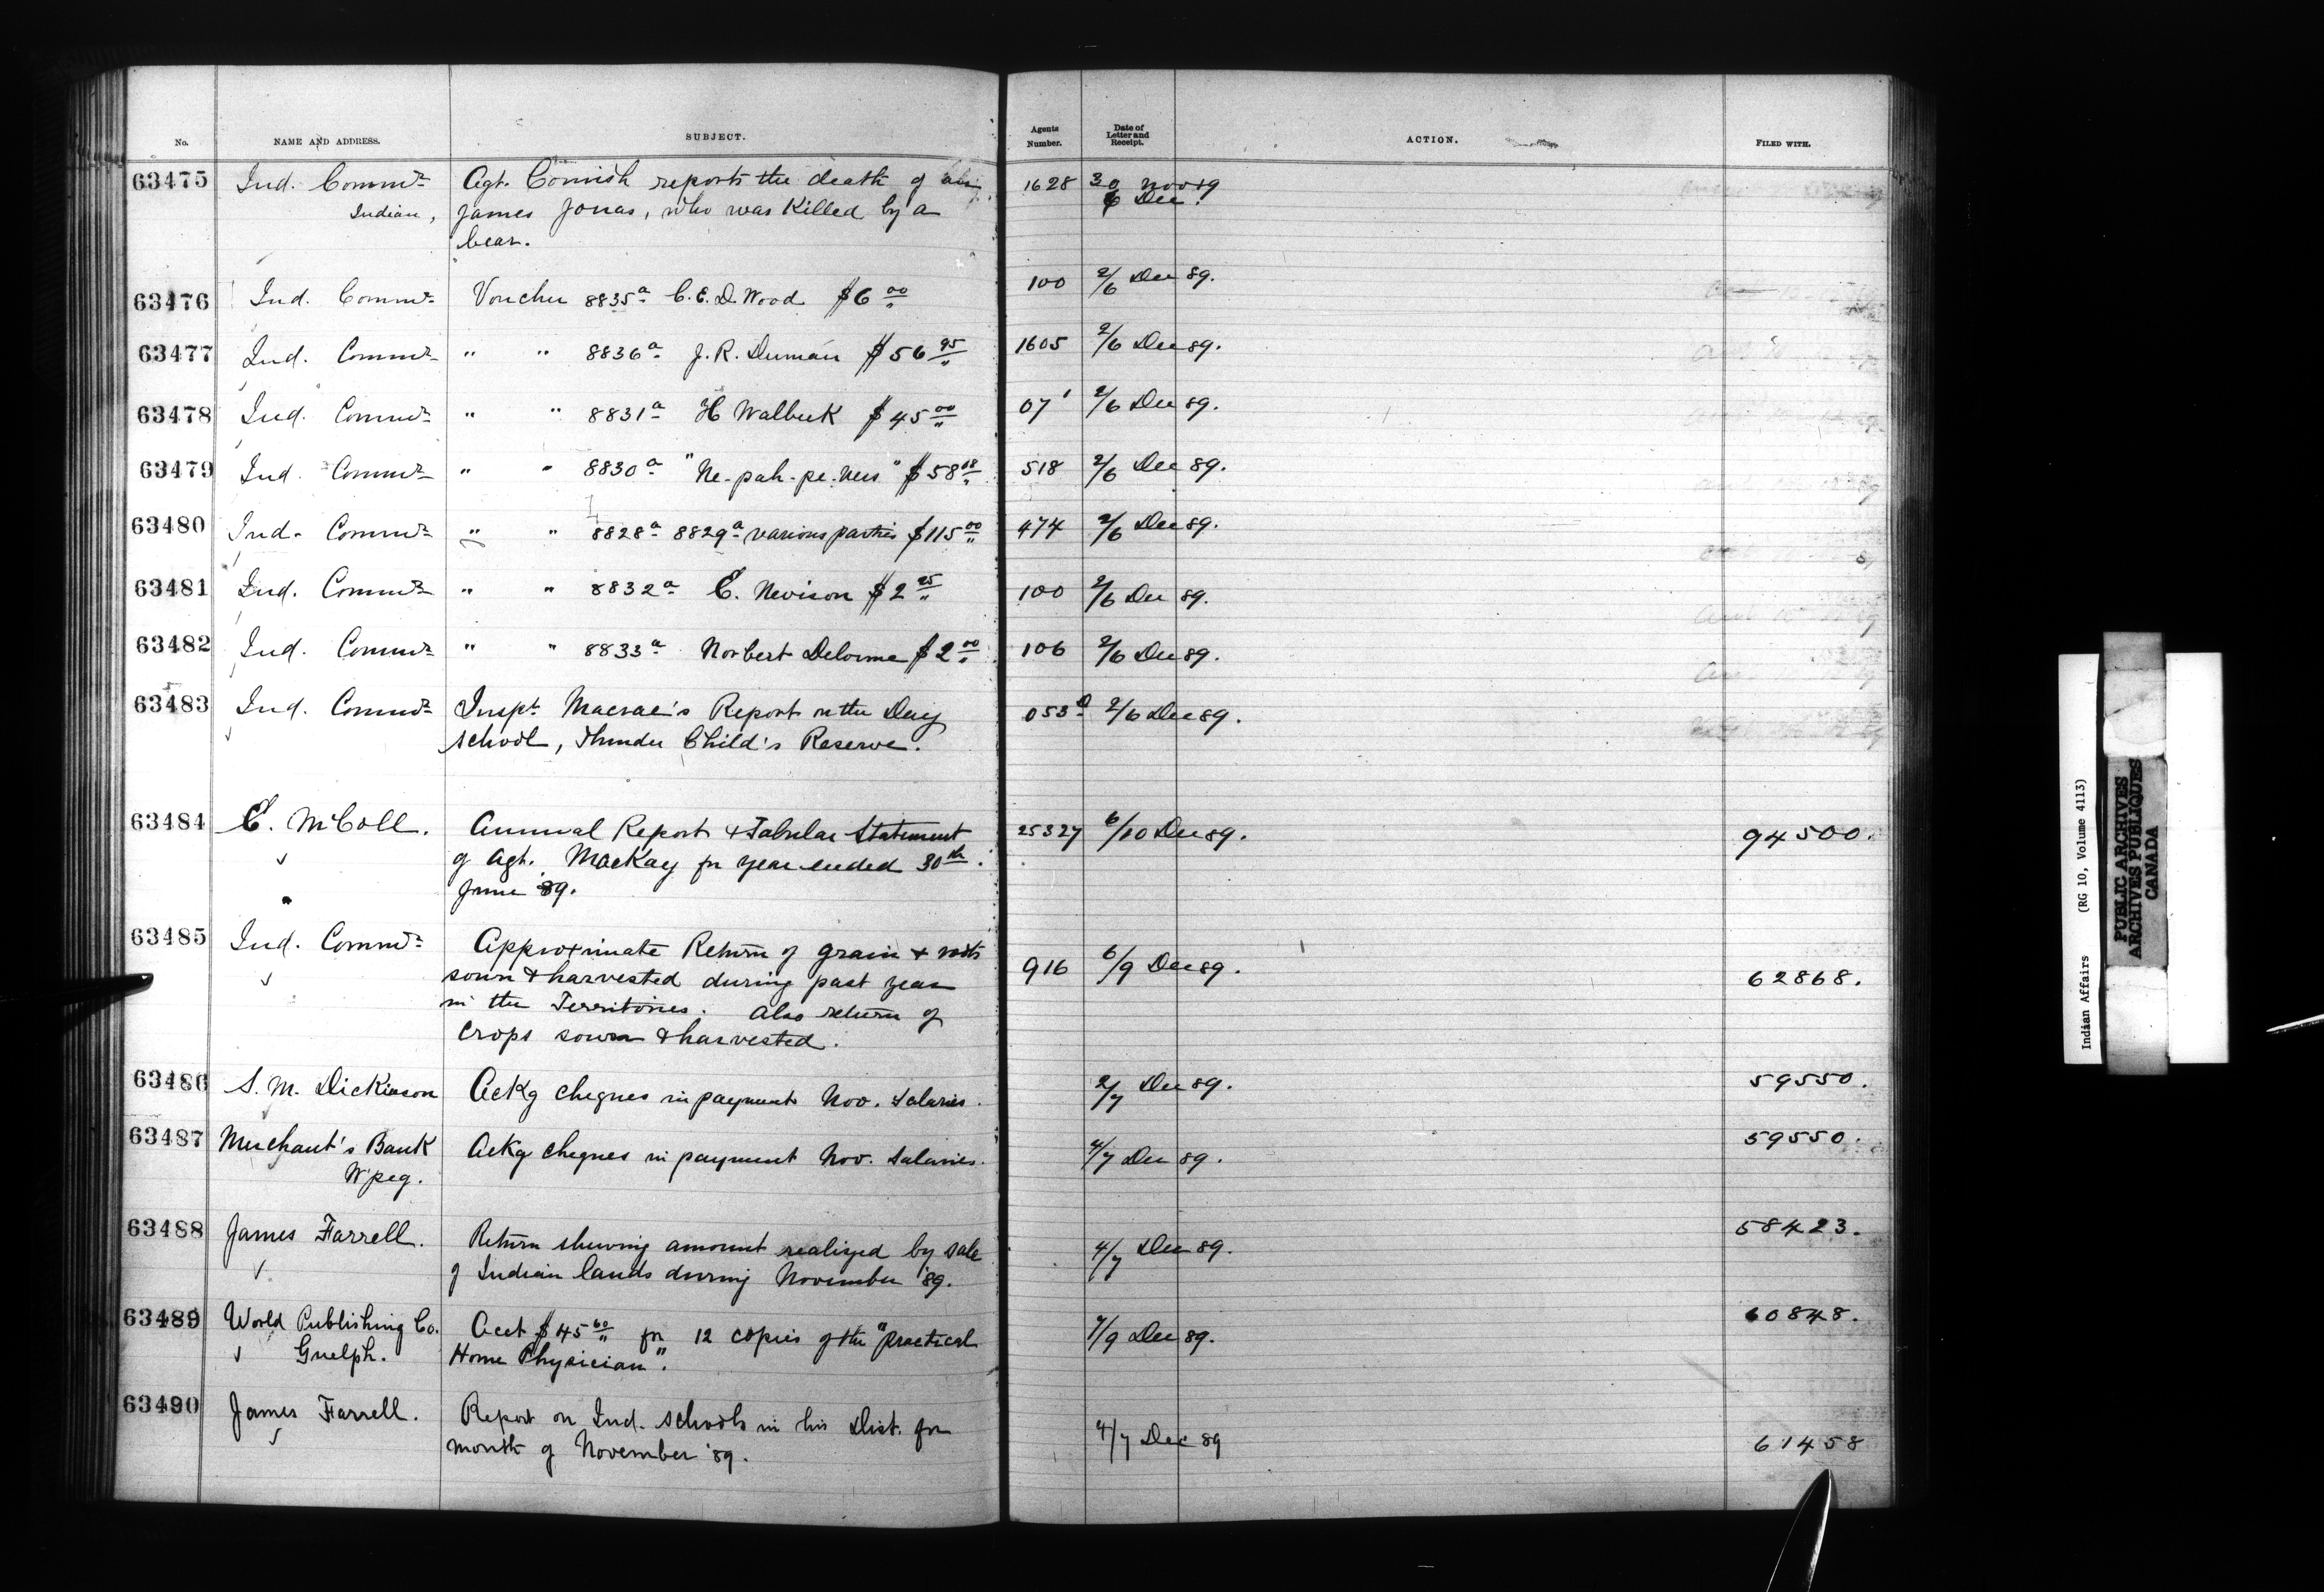 No. NAME AND ADDRESS. SUBJECT. Agents Number. Date of Letter and Receipt. ACTION. FILED WITH.
63475 Ind. Commr Agt. Cornish reports the death of an 1628 30 Nov 89
Indian, James Jonas, who was killed by a 6 Dec.
bear.
63476 Ind. Commr Voucher 8835a C.E.D. Wood $6 00 100 2/6 Dec 89.
63477 Ind. Commr " " 8836a J. R. Duman $56 95 1605 2/6 Dec 89.
63478 Ind. Commr " " 8831a H Walbuk $45 00 07 2/6 Dec 89.
63479 Ind. Commr " " 8830a "Ne-pah-pe-ness" $58 18 518 2/6 Dec 89.
63480 Ind. Commr " " 8828a 8829a various parties $115 00 474 2/6 Dec 89.
63481 Ind. Commr " " 8832a C. Nevison $2 25 100 2/6 Dec 89.
63482 Ind. Commr " " 8833a Norbert Delorme $2 00 106 2/6 Dec 89.
63483 Ind. Commr Inspt. Macrae's Report on the Day 053 D 2/6 Dec 89.
school, Thunder Child's Reserve.
63484 E. McColl. Annual Report & Tabular Statement 25327 6/10 Dec 89. 94500.
of Agt. MacKay for year ended 30th
June 89.
63485 Ind. Commr Approximate Return of grain & roots
sown & harvested during past year 916 6/9 Dec 89. 62868.
in the Territories. Also return of
crops sown & harvested.
63486 S. M. Dickinson Ackg cheques in payment Nov. salaries. 2/7 Dec 89. 59550.
63487 Merchant's Bank Ackg cheques in payment Nov. salaries. 4/7 Dec 89. 59550.
Wpeg.
63488 James Farrell. Return shewing amount realized by sale 4/7 Dec 89. 58423.
of Indian lands during November '89.
63489 World Publishing Co. Acct $45 60 for 12 copies of the "Practical 7/9 Dec 89. 60848.
Guelph. Home Physician".
63490 James Farrell. Report on Ind. schools in his Dist. for 4/7 Dec 89 61458
month of November '89.
Indian Affairs (RG 10, Volume 4113)
PUBLIC ARCHIVES
ARCHIVES PUBLIQUES
CANADA